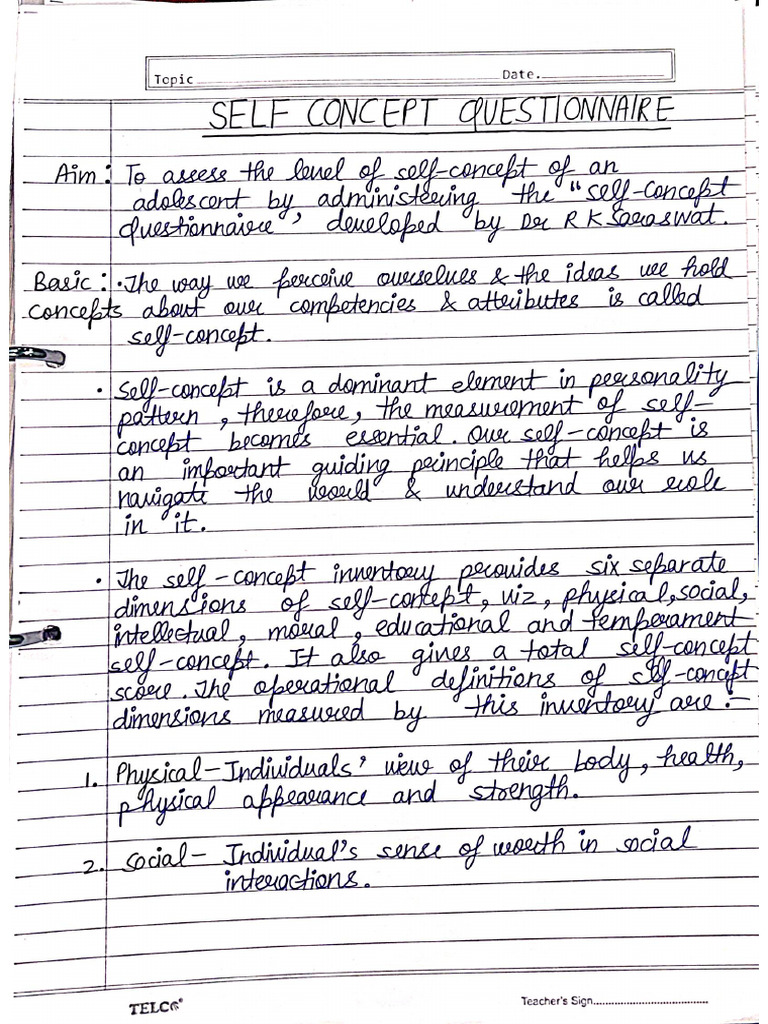 Topic Date.
SELF CONCEPT QUESTIONNAIRE
Aim: To assess the level of self-concept of an
adolescent by administering the "self-concept
Questionnaire", developed by Dr R K Saraswat.
Basic: • The way we perceive ourselves & the ideas we hold
concepts about our competencies & attributes is called
self-concept.
• Self-concept is a dominant element in personality
pattern, therefore, the measurement of self-
concept becomes essential. Our self-concept is
an important guiding principle that helps us
navigate the world & understand our role
in it.
• The self-concept inventory provides six separate
dimensions of self-concept, viz, physical, social,
intellectual, moral, educational and temperament
self-concept. It also gives a total self-concept
score. The operational definitions of self-concept
dimensions measured by this inventory are :-
1. Physical - Individuals' view of their body, health,
physical appearance and strength.
2. Social - Individual's sense of worth in social
interactions.
TELCO Teacher's Sign